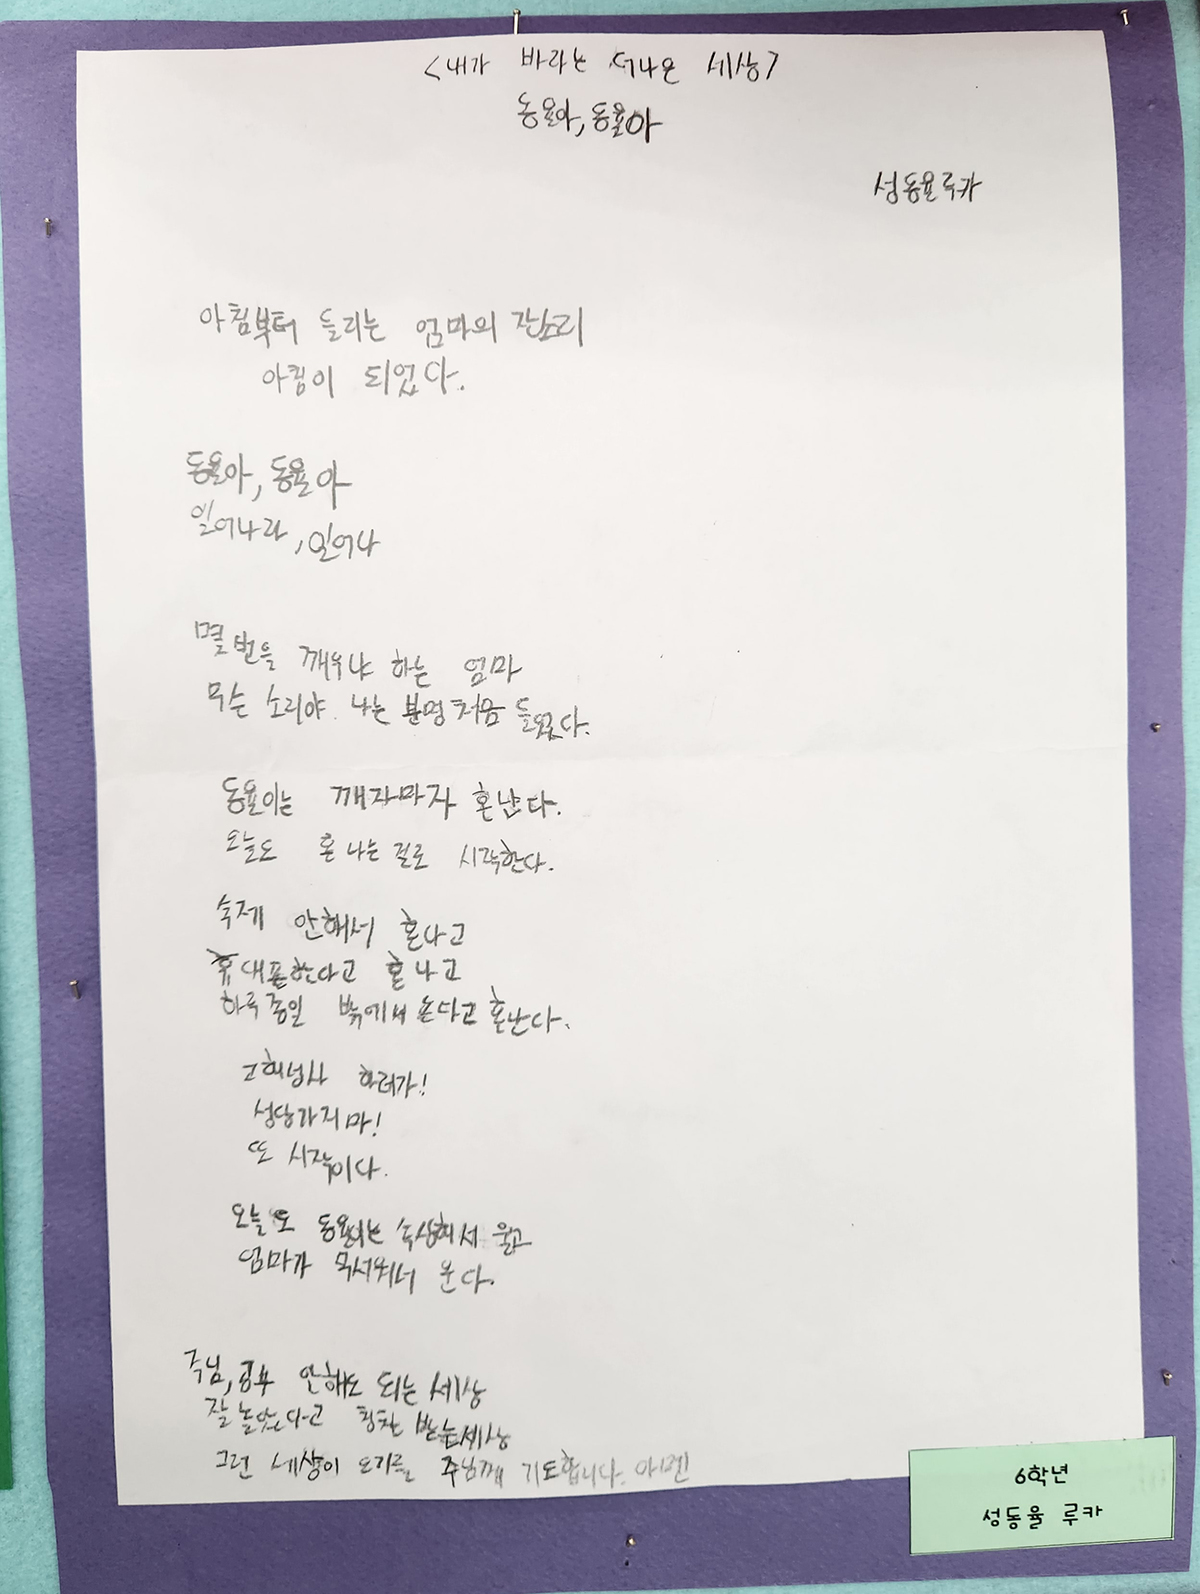 <내가 바라는 더나은 세상>
동율아, 동율아
성동율루카
아침부터 들리는 엄마의 잔소리
아침이 되었다.
동율아, 동율아
일어나라, 일어나
몇번을 깨우냐 하는 엄마
무슨 소리야 나는 분명 처음 들었다.
동율이는 깨자마자 혼난다.
오늘도 혼나는 걸로 시작한다.
숙제 안해서 혼나고
휴대폰한다고 혼나고
하루종일 밖에서 논다고 혼난다.
고해성사 하러가!
성당가지마!
또 시작이다.
오늘도 동율이는 속상해서 울고
엄마가 무서워서 운다.
주님, 공부 안해도 되는 세상
잘 놀았다고 칭찬 받는세상
그런 세상이 오기를 주님께 기도합니다. 아멘
6학년
성동율 루카